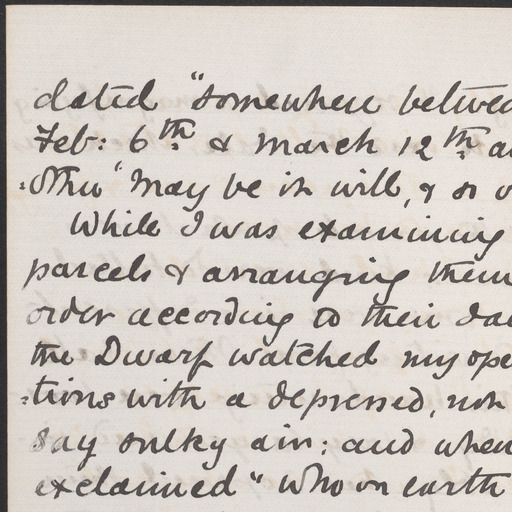 dated "somewhere betwee
Feb: 6th & March 12th a
:other" may be it will, & so o
While I was examining
parcels & arranging them
order according to their da
the Dwarf watched my ope
:tions with a depressed, not
say sulky air: and when
exclaimed "who on earth